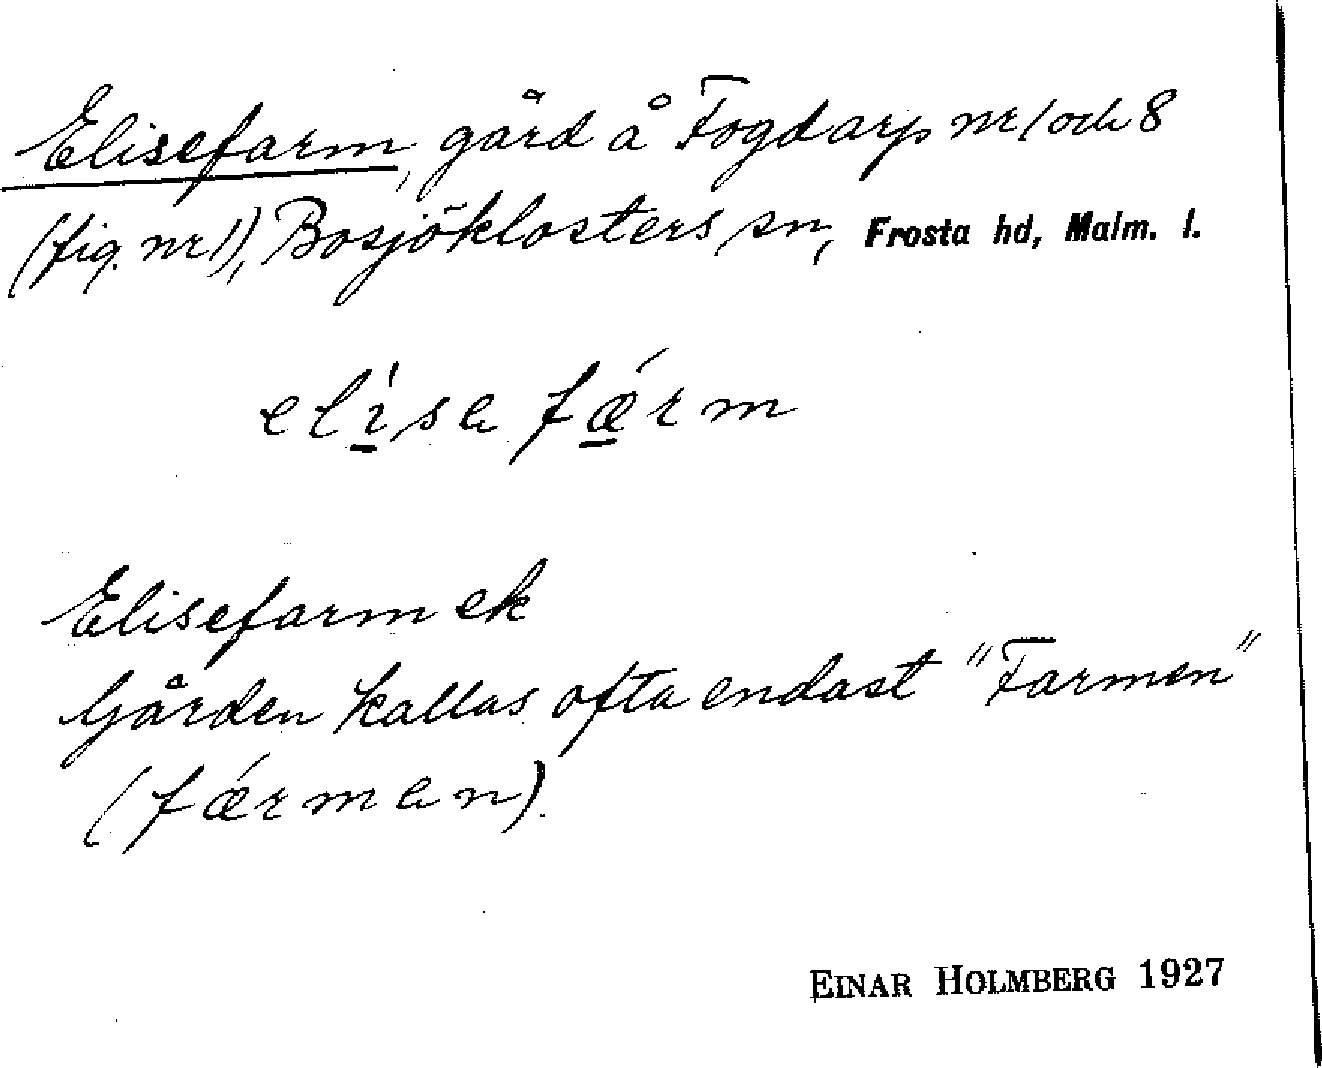 Elisefarm, gård å Fogdarp nr 1 och 8
(fig. nr 1), Bosjöklosters sn, Frosta hd, Malm. l.
elísa fǽrm
Elisefarm ek
Gården kallas ofta endast "Farmen"
(fǽrman).
EINAR HOLMBERG 1927